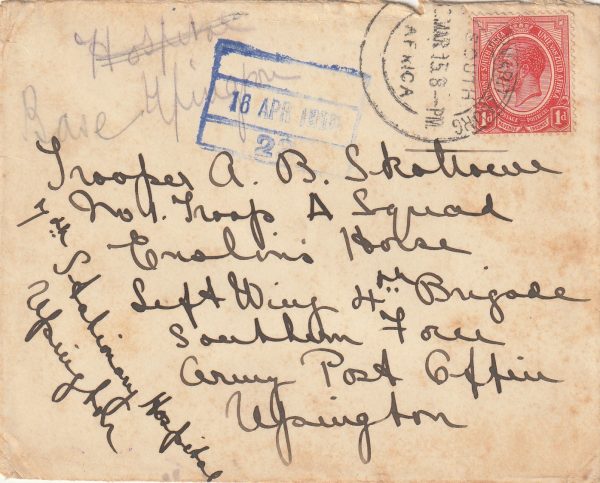 Hospital
Base Upington
16 APR 1915
MAR 15 8 - PM
SOUTH
AFRICA
1d 1d
Trooper A. B.
No 1. Troop A Squad
Enslin's Horse
Left Wing 4th Brigade
Southern Force
Army Post Office
Upington
7th Stationary Hospital
Upington